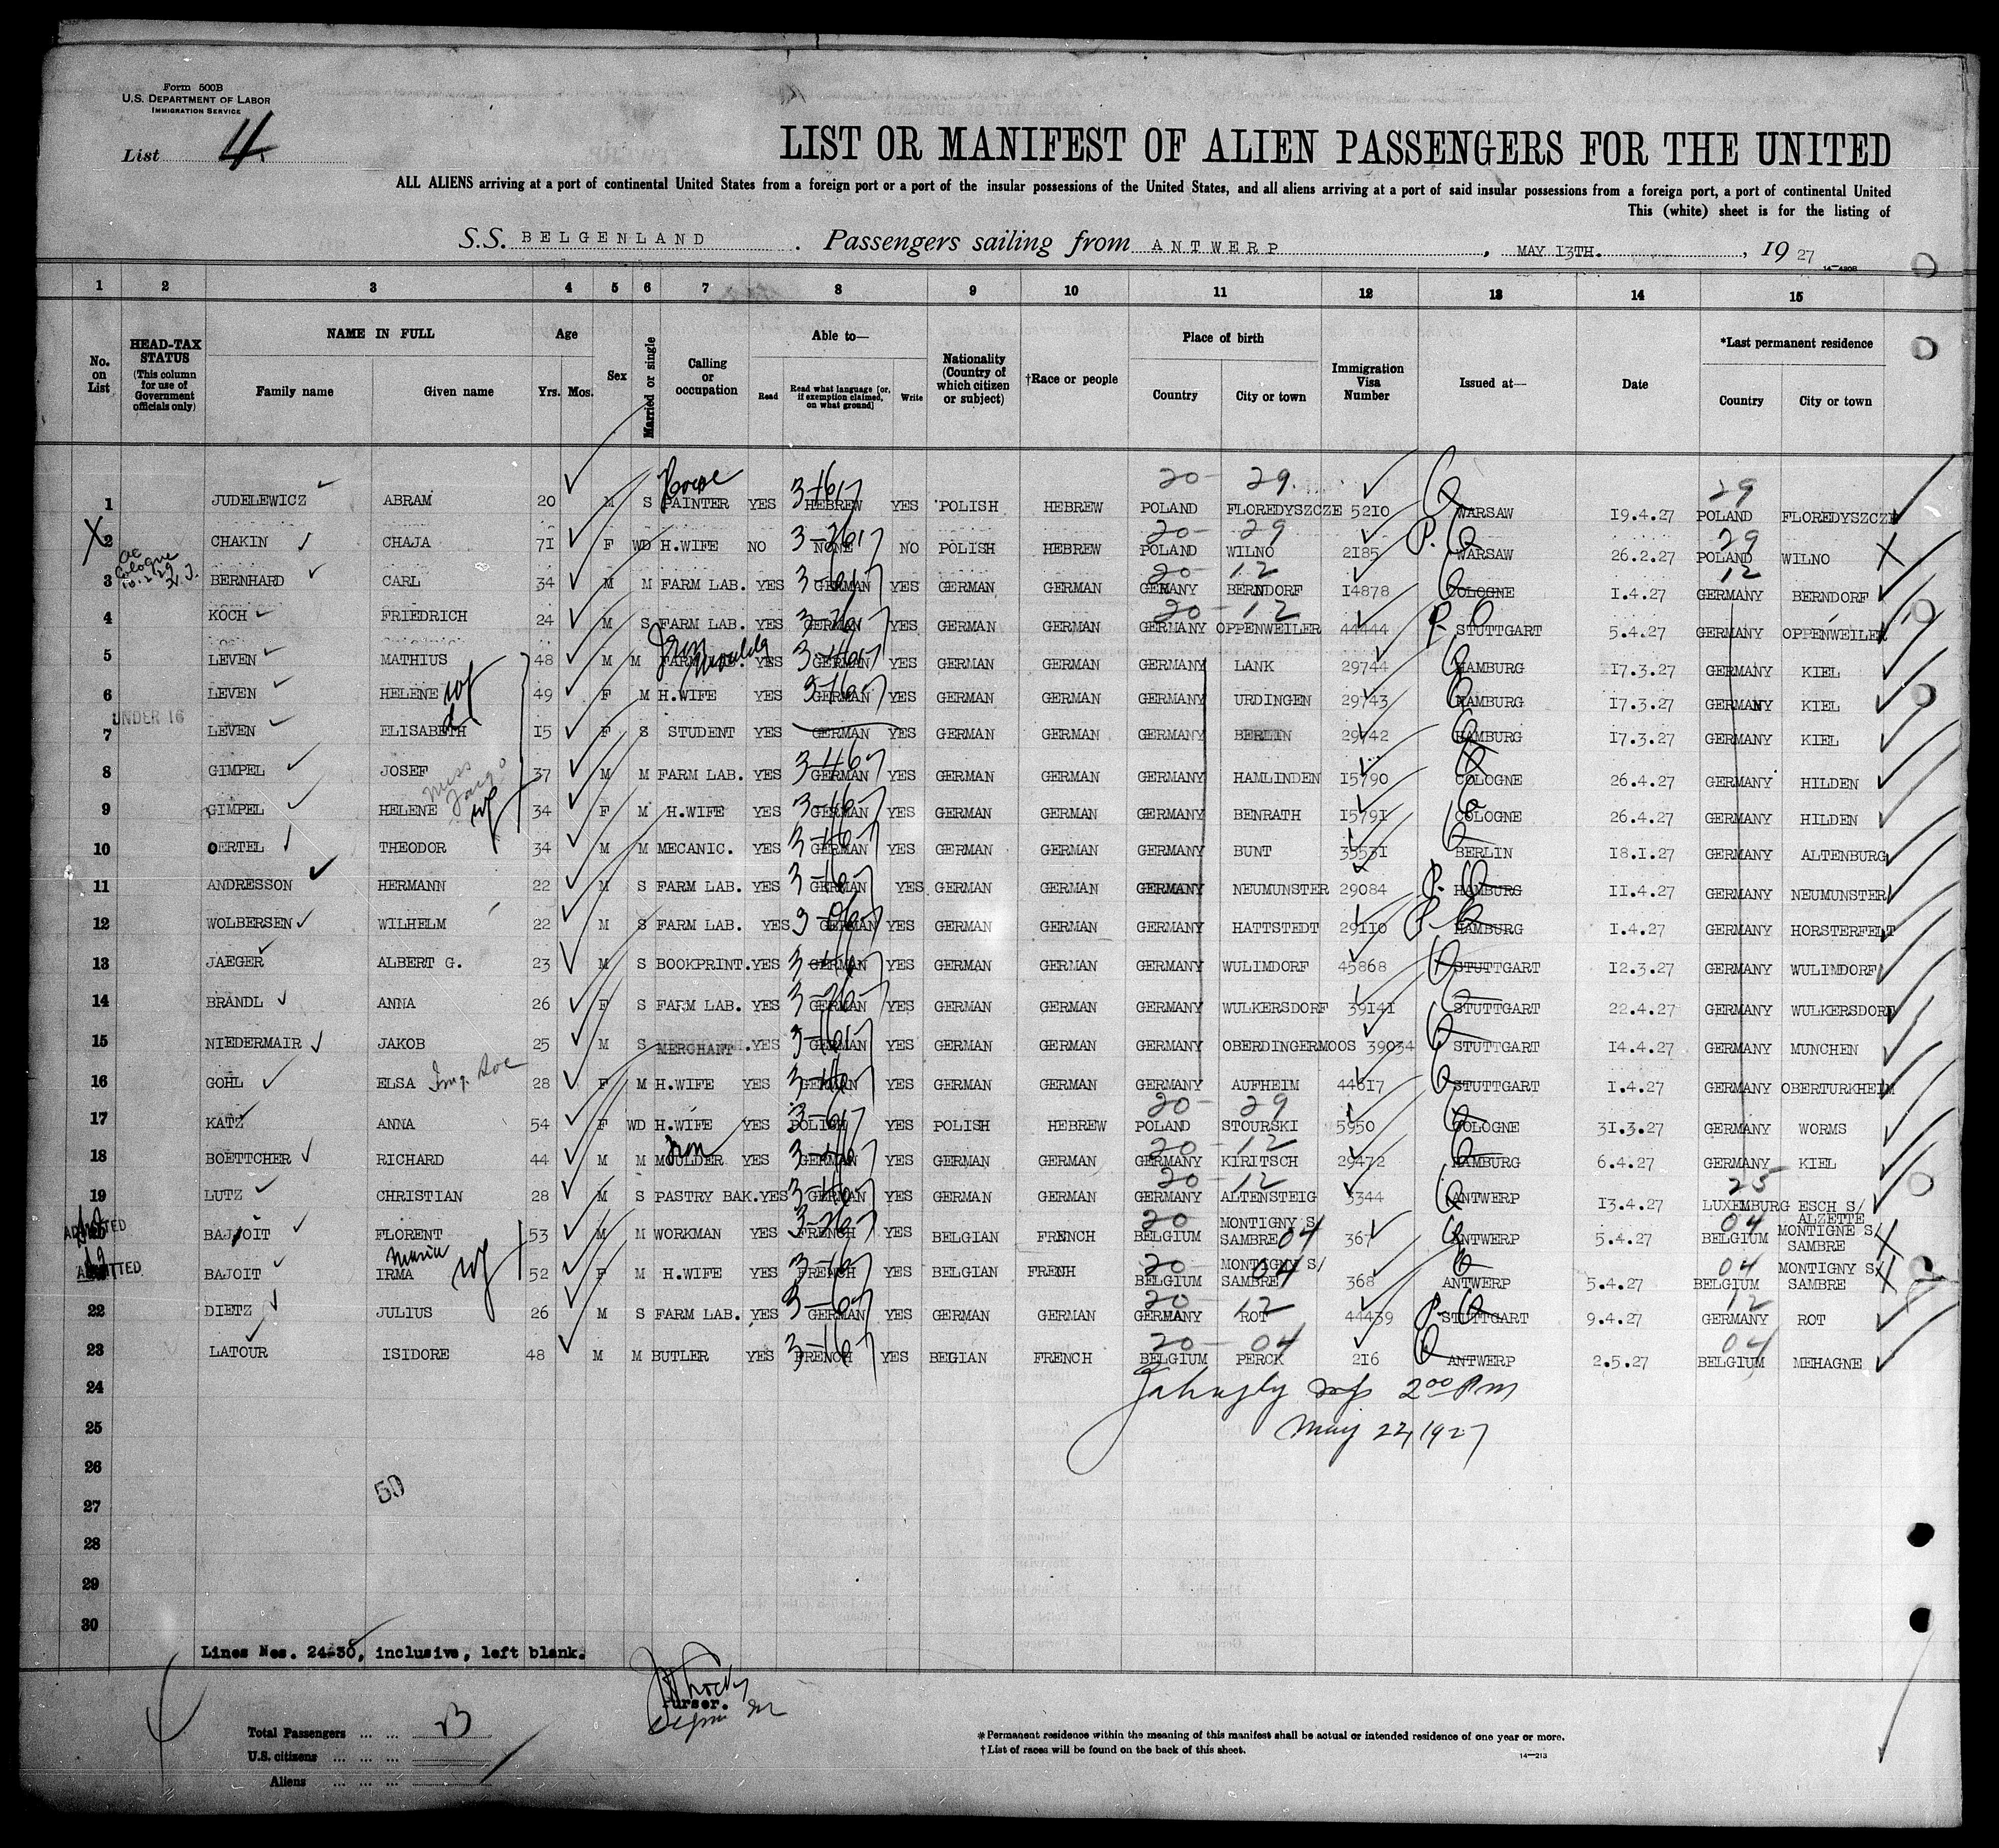 Form 500B
U.S. DEPARTMENT OF LABOR
IMMIGRATION SERVICE
List 4.
LIST OR MANIFEST OF ALIEN PASSENGERS FOR THE UNITED
ALL ALIENS arriving at a port of continental United States from a foreign port or a port of the insular possessions of the United States, and all aliens arriving at a port of said insular possessions from a foreign port, a port of continental United
This (white) sheet is for the listing of
S.S. BELGENLAND. Passengers sailing from ANTWERP, MAY 13TH., 19 27
14—4208
1 2 3 4 5 6 7 8 9 10 11 12 13 14 15
No. on List
HEAD-TAX STATUS (This column for use of Government officials only)
NAME IN FULL
Family name Given name
Age
Yrs. Mos.
Sex
Married or single
Calling or occupation
Able to—
Read Read what language [or, if exemption claimed, on what ground] Write
Nationality (Country of which citizen or subject)
†Race or people
Place of birth
Country City or town
Immigration Visa Number
Issued at—
Date
*Last permanent residence
Country City or town
20- 29 29
1 JUDELEWICZ ABRAM 20 M S PAINTER YES HEBREW YES POLISH HEBREW POLAND FLOREDYSZCZE 5210 WARSAW 19.4.27 POLAND FLOREDYSZCZE
20- 29 29
2 CHAKIN CHAJA 71 F WD H.WIFE NO NONE NO POLISH HEBREW POLAND WILNO 2185 WARSAW 26.2.27 POLAND WILNO
20- 12 12
3 BERNHARD CARL 34 M M FARM LAB. YES GERMAN YES GERMAN GERMAN GERMANY BERNDORF 14878 COLOGNE 1.4.27 GERMANY BERNDORF
20- 12
4 KOCH FRIEDRICH 24 M S FARM LAB. YES GERMAN YES GERMAN GERMAN GERMANY OPPENWEILER 44444 STUTTGART 5.4.27 GERMANY OPPENWEILER
5 LEVEN MATHIUS 48 M M FARM LAB. YES GERMAN YES GERMAN GERMAN GERMANY LANK 29744 HAMBURG 17.3.27 GERMANY KIEL
6 LEVEN HELENE wf 49 F M H.WIFE YES GERMAN YES GERMAN GERMAN GERMANY URDINGEN 29743 HAMBURG 17.3.27 GERMANY KIEL
UNDER 16
7 LEVEN ELISABETH d 15 F S STUDENT YES GERMAN YES GERMAN GERMAN GERMANY BERLIN 29742 HAMBURG 17.3.27 GERMANY KIEL
8 GIMPEL JOSEF 37 M M FARM LAB. YES GERMAN YES GERMAN GERMAN GERMANY HAMLINDEN 15790 COLOGNE 26.4.27 GERMANY HILDEN
9 GIMPEL HELENE wf 34 F M H.WIFE YES GERMAN YES GERMAN GERMAN GERMANY BENRATH 15791 COLOGNE 26.4.27 GERMANY HILDEN
10 OERTEL THEODOR 34 M M MECANIC. YES GERMAN YES GERMAN GERMAN GERMANY BUNT 35531 BERLIN 18.1.27 GERMANY ALTENBURG
11 ANDRESSON HERMANN 22 M S FARM LAB. YES GERMAN YES GERMAN GERMAN GERMANY NEUMUNSTER 29084 HAMBURG 11.4.27 GERMANY NEUMUNSTER
12 WOLBERSEN WILHELM 22 M S FARM LAB. YES GERMAN YES GERMAN GERMAN GERMANY HATTSTEDT 29110 HAMBURG 1.4.27 GERMANY HORSTERFELT
13 JAEGER ALBERT G. 23 M S BOOKPRINT. YES GERMAN YES GERMAN GERMAN GERMANY WULIMDORF 45868 STUTTGART 12.3.27 GERMANY WULIMDORF
14 BRANDL ANNA 26 F S FARM LAB. YES GERMAN YES GERMAN GERMAN GERMANY WULKERSDORF 39141 STUTTGART 22.4.27 GERMANY WULKERSDORF
15 NIEDERMAIR JAKOB 25 M S MERCHANT. YES GERMAN YES GERMAN GERMAN GERMANY OBERDINGERMOOS 39034 STUTTGART 14.4.27 GERMANY MUNCHEN
16 GOHL ELSA 28 F M H.WIFE YES GERMAN YES GERMAN GERMAN GERMANY AUFHEIM 44617 STUTTGART 1.4.27 GERMANY OBERTURKHEIM
20- 29
17 KATZ ANNA 54 F WD H.WIFE YES POLISH YES POLISH HEBREW POLAND STOURSKI 5950 COLOGNE 31.3.27 GERMANY WORMS
Iron 20- 12
18 BOETTCHER RICHARD 44 M M MOULDER YES GERMAN YES GERMAN GERMAN GERMANY KIRITSCH 29472 HAMBURG 6.4.27 GERMANY KIEL
20- 12 25
19 LUTZ CHRISTIAN 28 M S PASTRY BAK. YES GERMAN YES GERMAN GERMAN GERMANY ALTENSTEIG 3344 ANTWERP 13.4.27 LUXEMBURG ESCH S/ ALZETTE
ADMITTED BAJOIT FLORENT 53 M M WORKMAN YES FRENCH YES BELGIAN FRENCH 20 BELGIUM MONTIGNY S/ SAMBRE 04 367 ANTWERP 5.4.27 04 BELGIUM MONTIGNE S/ SAMBRE
ADMITTED BAJOIT IRMA Maria wf 52 F M H.WIFE YES FRENCH YES BELGIAN FRENH 20- BELGIUM MONTIGNY S/ SAMBRE 04 368 ANTWERP 5.4.27 04 BELGIUM MONTIGNY S/ SAMBRE
20- 12 12
22 DIETZ JULIUS 26 M S FARM LAB. YES GERMAN YES GERMAN GERMAN GERMANY ROT 44439 STUTTGART 9.4.27 GERMANY ROT
20- 04 04
23 LATOUR ISIDORE 48 M M BUTLER YES FRENCH YES BEGIAN FRENCH BELGIUM PERCK 216 ANTWERP 2.5.27 BELGIUM MEHAGNE
24 2 00 PM
25 May 22, 1927
26
27 50
28
29
30
Lines Nos. 24-30, inclusive, left blank.
Purser.
Total Passengers ... ... 23
U.S. citizens ... ... ...
Aliens ... ... ...
*Permanent residence within the meaning of this manifest shall be actual or intended residence of one year or more.
†List of races will be found on the back of this sheet.
14—213